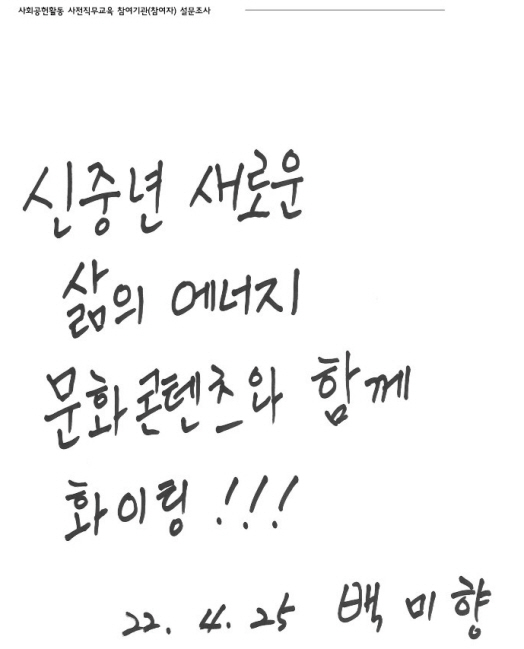 사회공헌활동 사전직무교육 참여기관(참여자) 설문조사
신중년 새로운
삶의 에너지
문화콘텐츠와 함께
화이팅 !!!
22. 4. 25 백미향